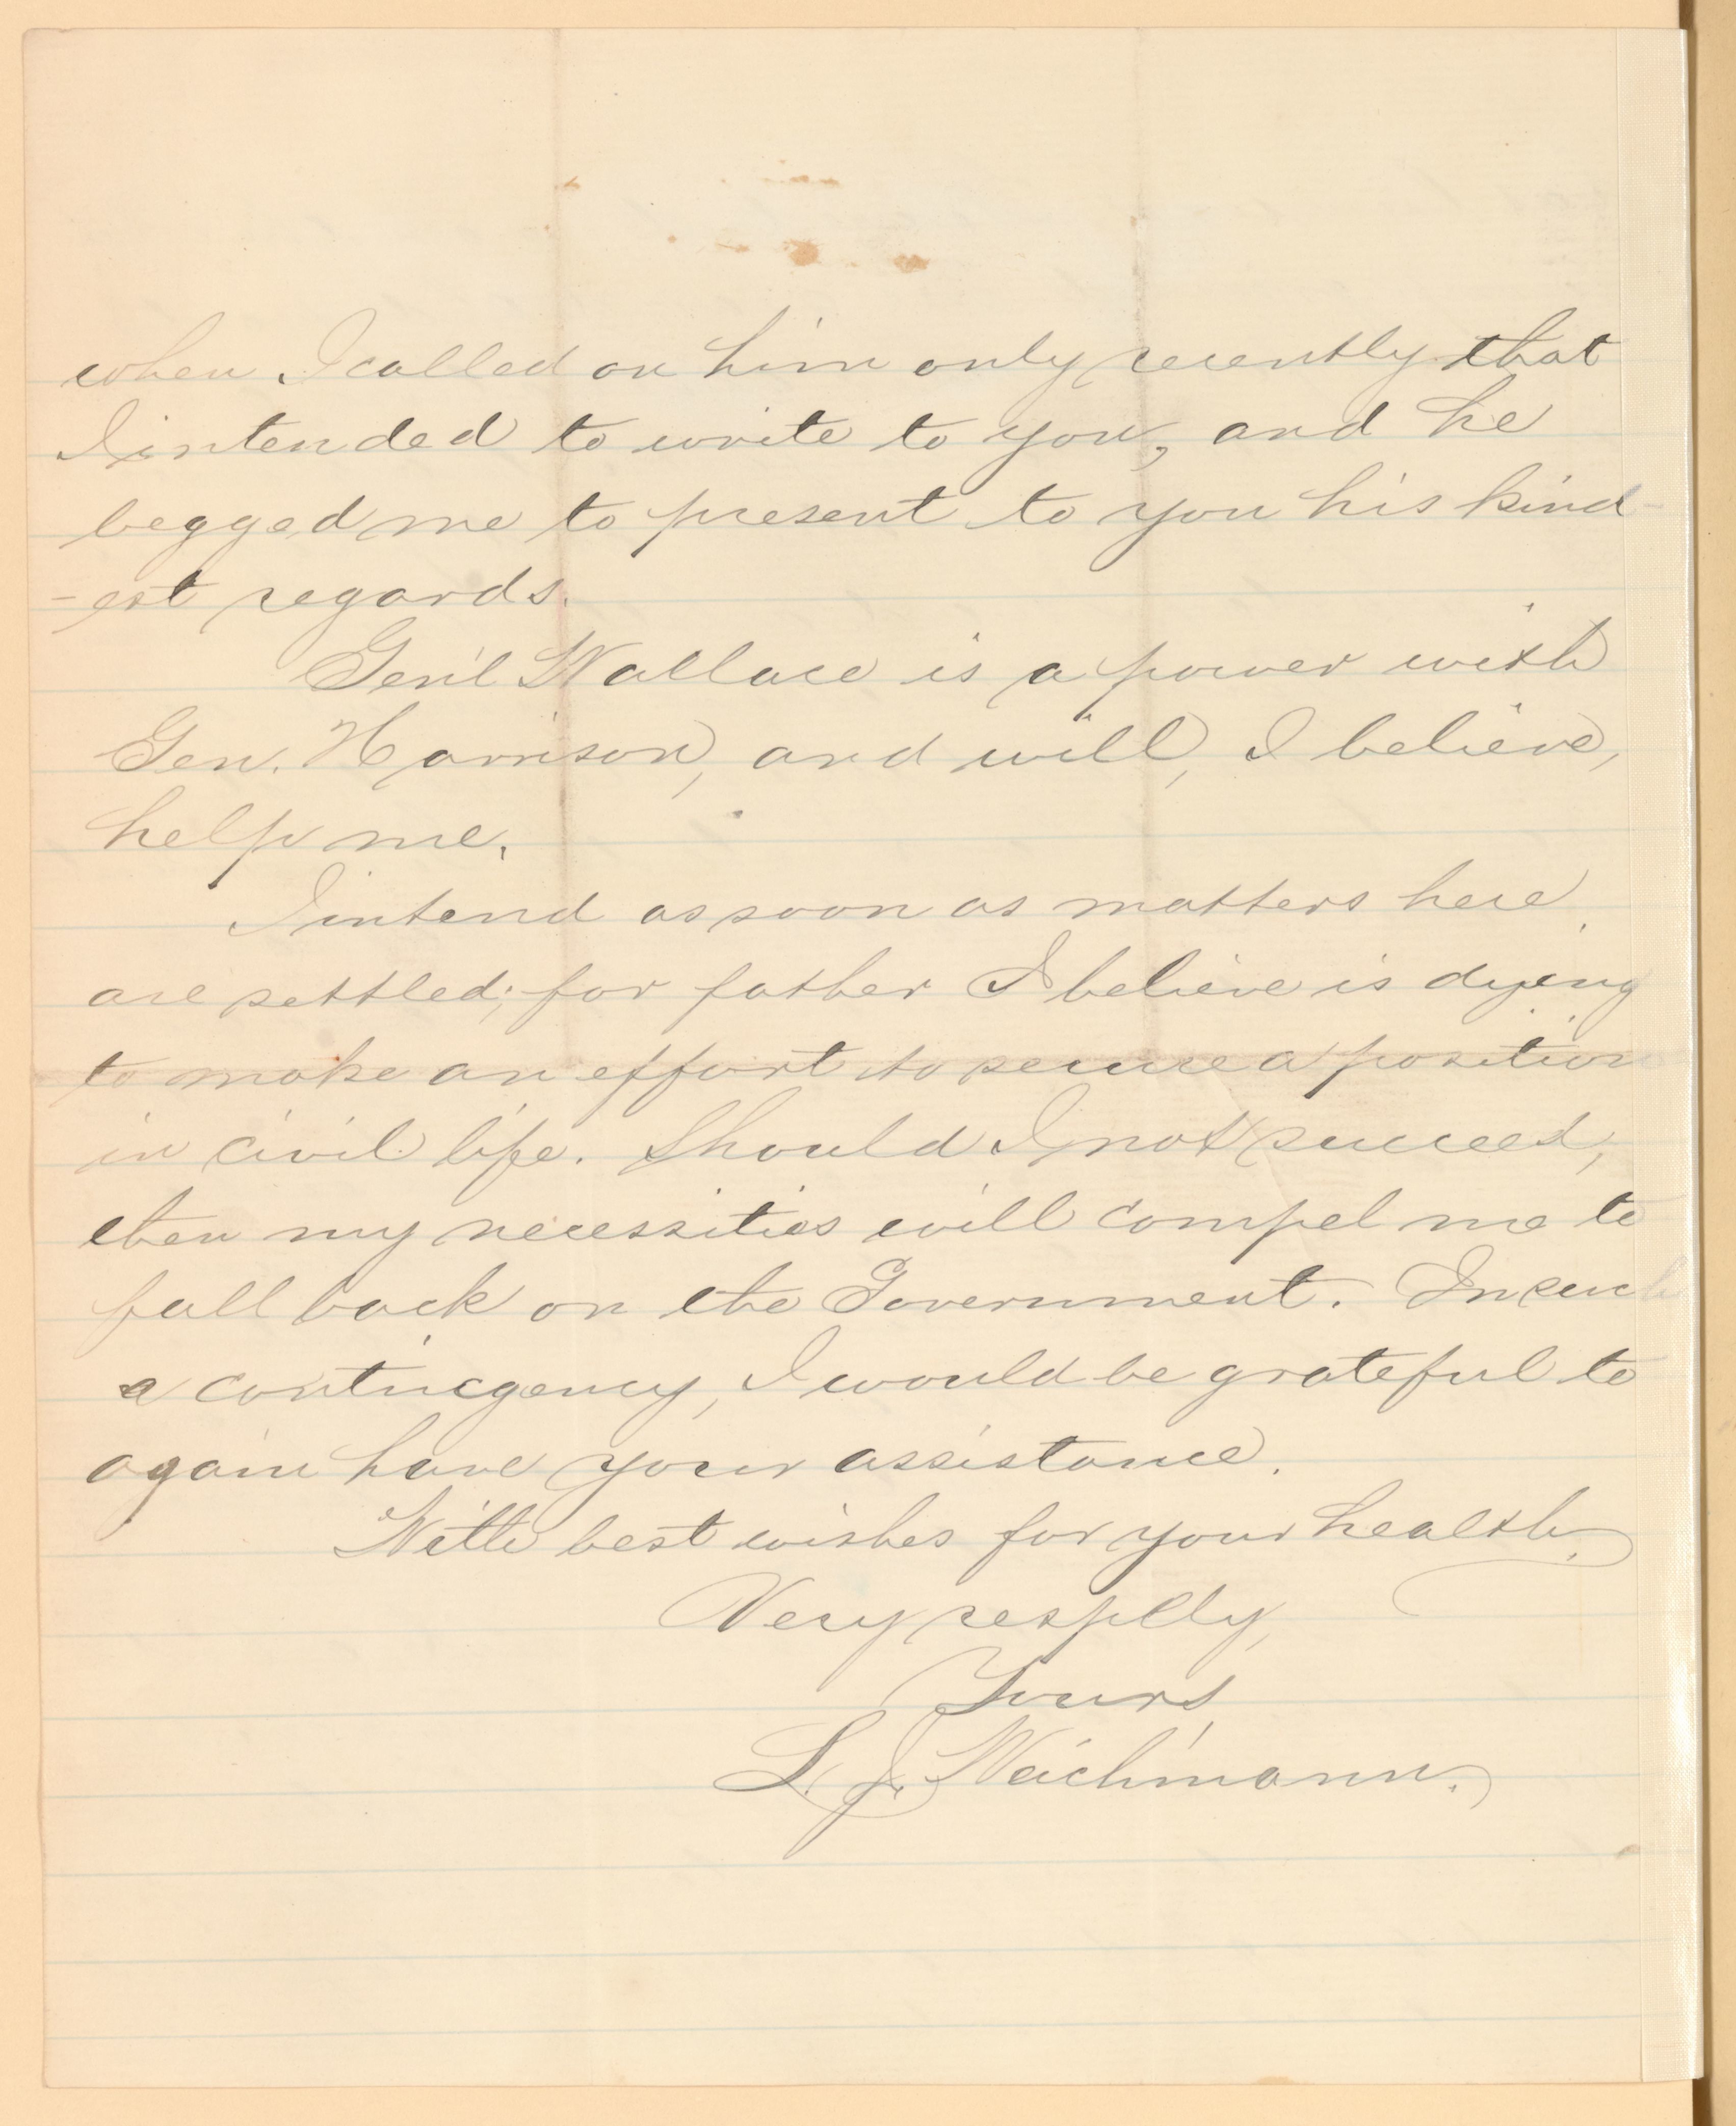 when I called on him only recently that
I intended to write to you, and he
begged me to present to you his kind-
-est regards.
Gen'l Wallace is a power with
Gen. Harrison, and will, I believe,
help me.
I intend as soon as matters here,
are settled; for father I believe is dying
to make an effort to secure a position
in civil life. Should I not succeed,
then my necessities will compel me to
fall back on the Government. In such
a contingency, I would be grateful to
again have your assistance.
With best wishes for your health,
Very respflly,
Yours,
L. J. Weichmann.